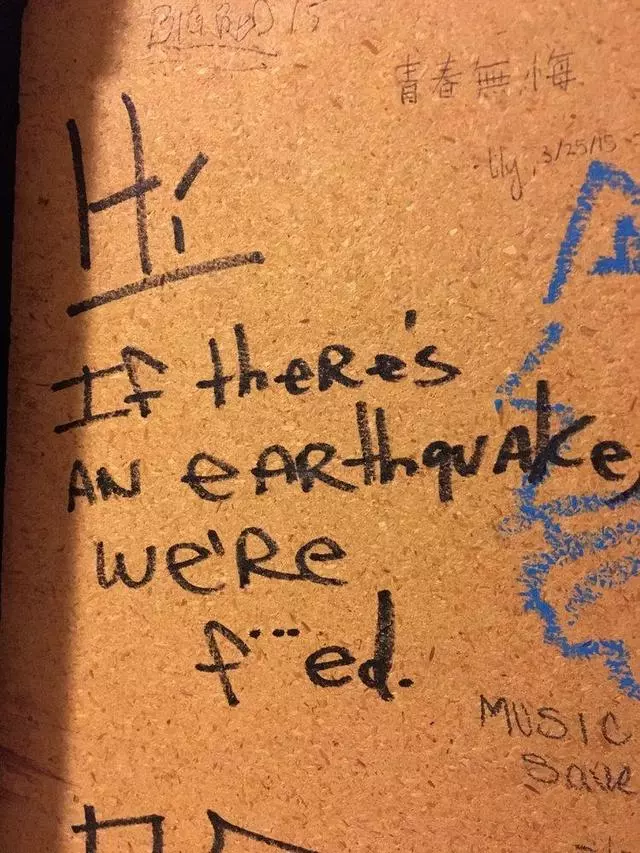 BIG RED 15
青春無悔
3/25/15
Hi
If there's
AN eARthquAke,
we're
f...ed.
MUSIC
Save